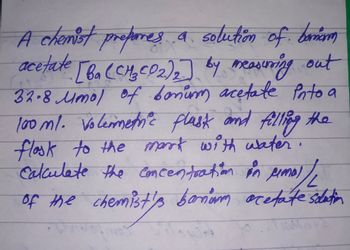 A chemist prepares a solution of barium
acetate [Ba(CH3CO2)2] by measuring out
32.8 μmol of barium acetate into a
100 ml. volumetric flask and filling the
flask to the mark with water.
Calculate the concentration in μmol/L
of the chemist's barium acetate solution